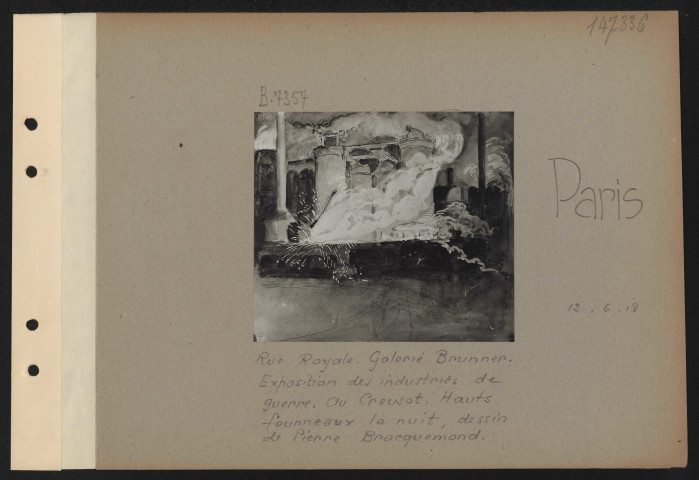 147336
B.7357
Paris
12.6.18
Rue Royale. Galerie Brunner.
Exposition des industries de
guerre. Au Creusot. Hauts
fourneaux la nuit, dessin
de Pierre Bracquemond.